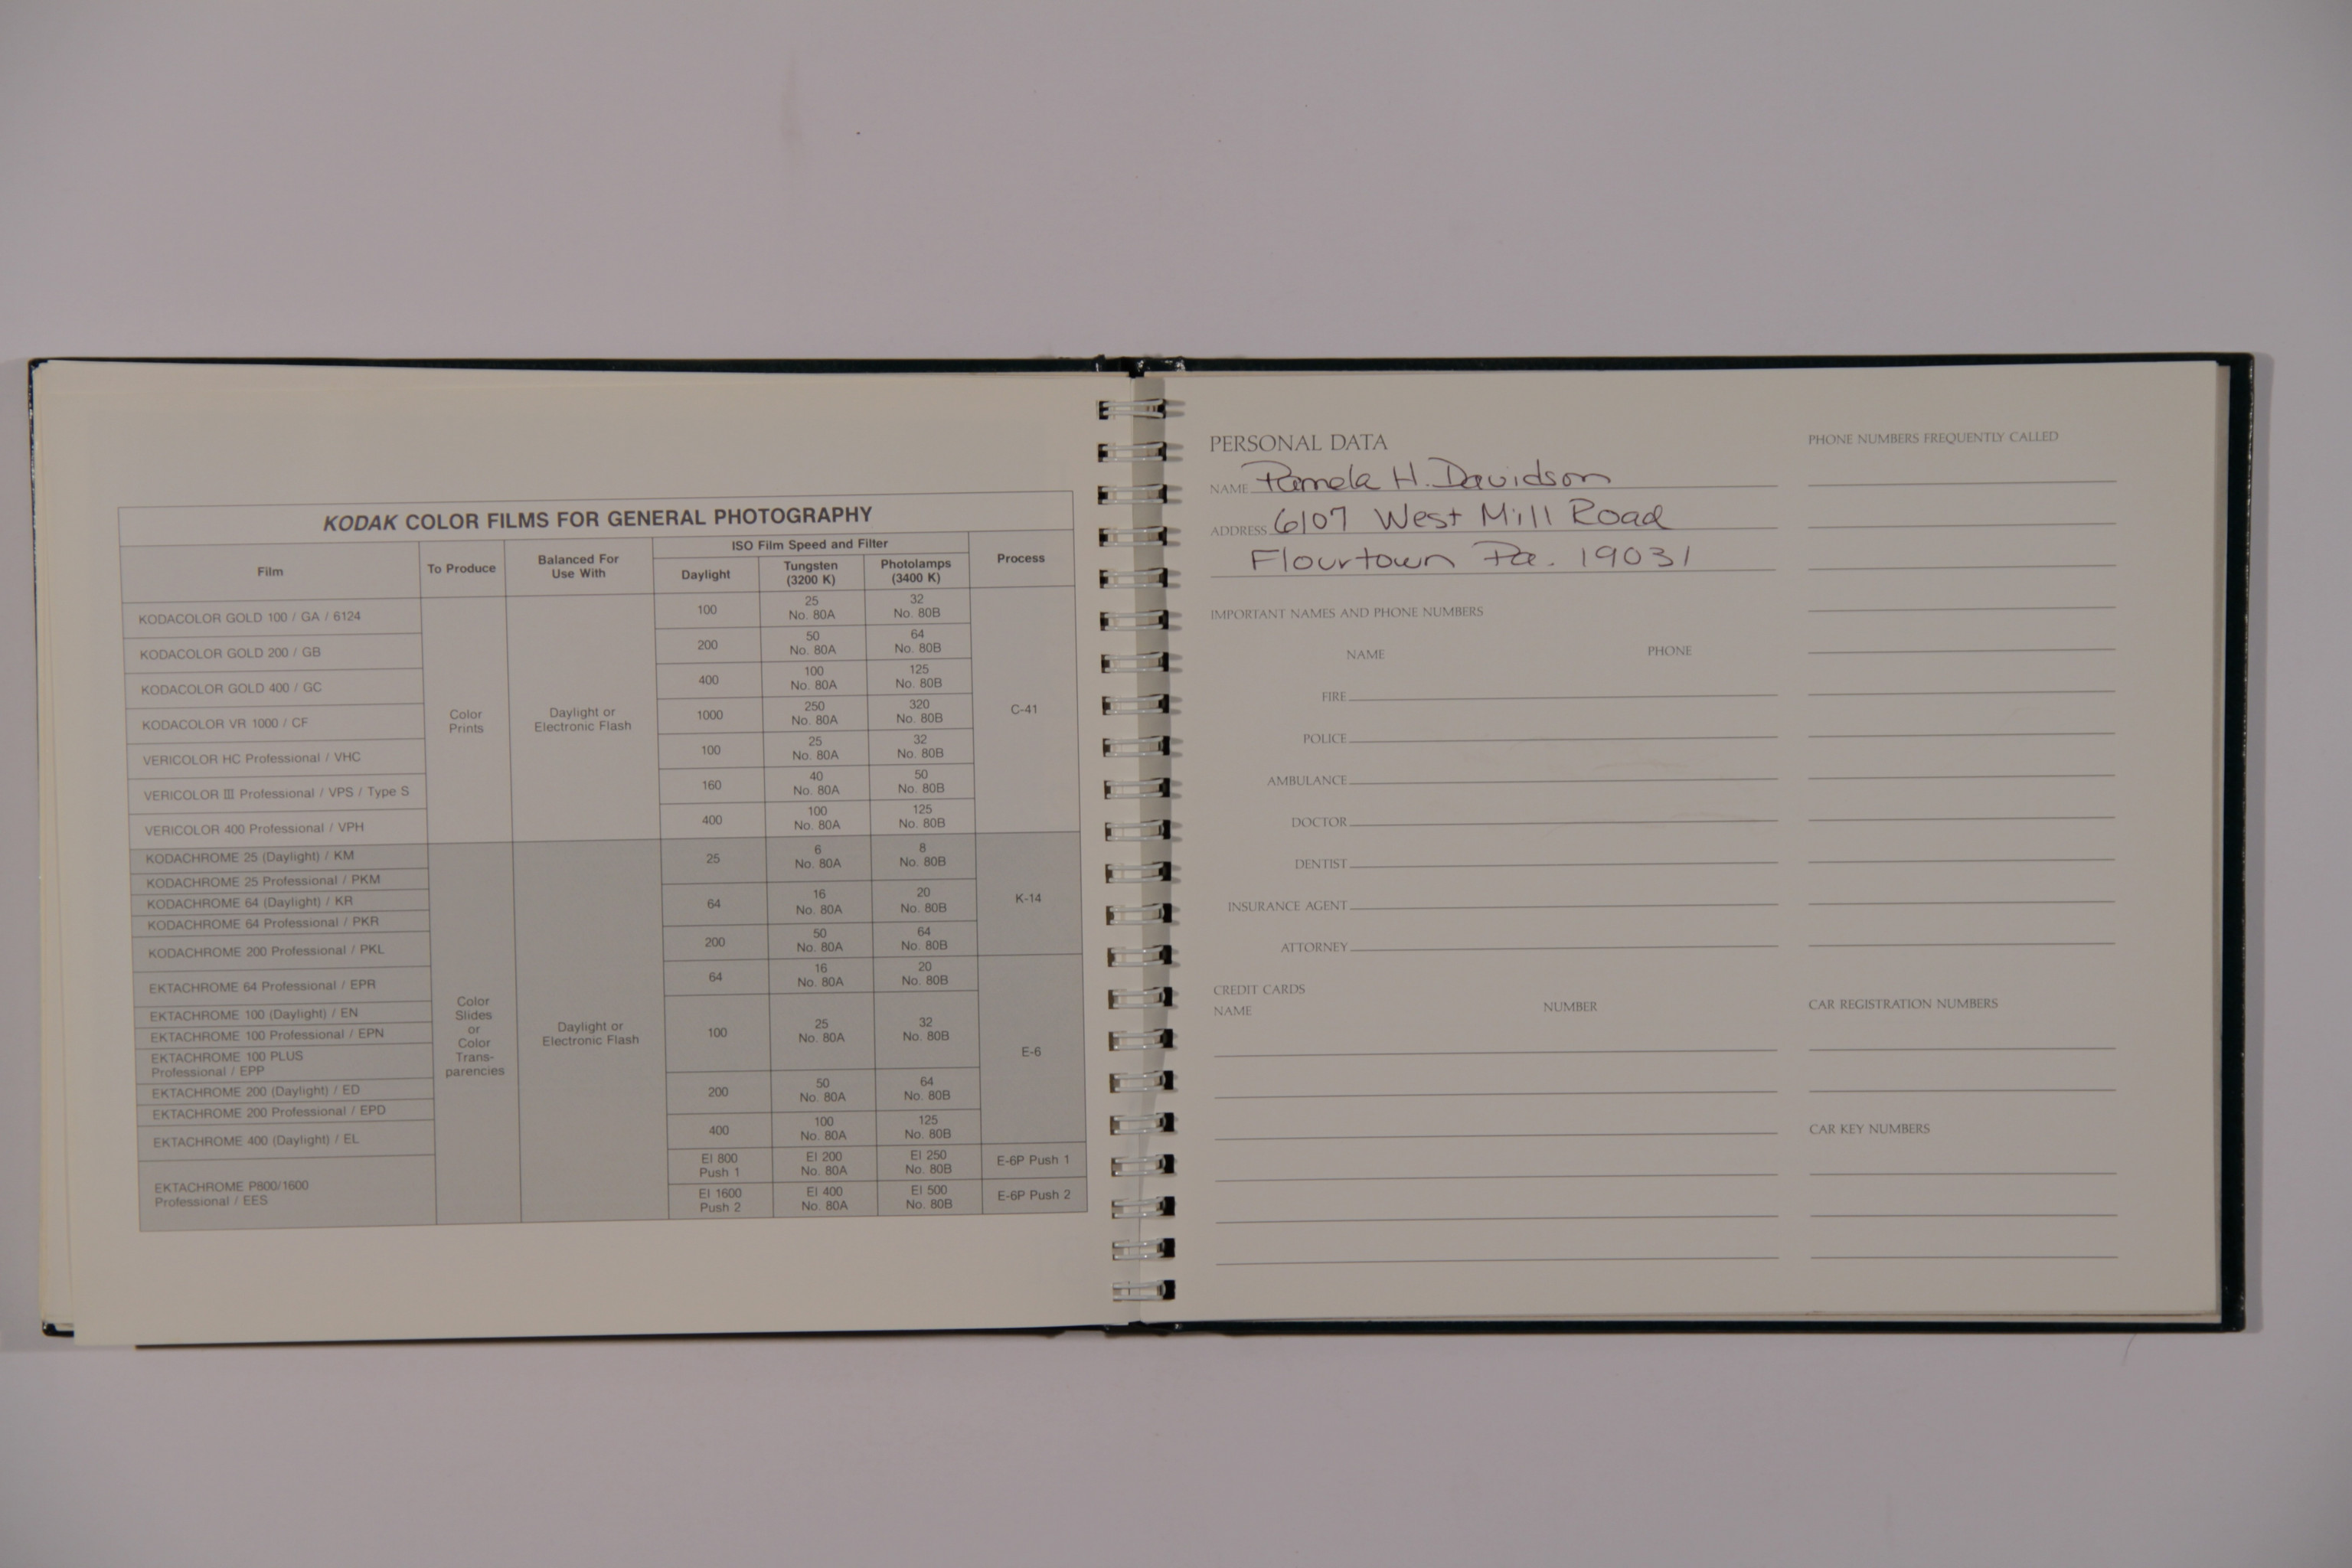 KODAK COLOR FILMS FOR GENERAL PHOTOGRAPHY
Film To Produce Balanced For Use With ISO Film Speed and Filter Process
Daylight Tungsten (3200 K) Photolamps (3400 K)
KODACOLOR GOLD 100 / GA / 6124 100 25 No. 80A 32 No. 80B
KODACOLOR GOLD 200 / GB 200 50 No. 80A 64 No. 80B
KODACOLOR GOLD 400 / GC 400 100 No. 80A 125 No. 80B
KODACOLOR VR 1000 / CF Color Prints Daylight or Electronic Flash 1000 250 No. 80A 320 No. 80B C-41
VERICOLOR HC Professional / VHC 100 25 No. 80A 32 No. 80B
VERICOLOR III Professional / VPS / Type S 160 40 No. 80A 50 No. 80B
VERICOLOR 400 Professional / VPH 400 100 No. 80A 125 No. 80B
KODACHROME 25 (Daylight) / KM 25 6 No. 80A 8 No. 80B
KODACHROME 25 Professional / PKM
KODACHROME 64 (Daylight) / KR 64 16 No. 80A 20 No. 80B K-14
KODACHROME 64 Professional / PKR
KODACHROME 200 Professional / PKL 200 50 No. 80A 64 No. 80B
EKTACHROME 64 Professional / EPR 64 16 No. 80A 20 No. 80B
EKTACHROME 100 (Daylight) / EN
EKTACHROME 100 Professional / EPN Color Slides or Color Trans-parencies Daylight or Electronic Flash 100 25 No. 80A 32 No. 80B E-6
EKTACHROME 100 PLUS
Professional / EPP
EKTACHROME 200 (Daylight) / ED 200 50 No. 80A 64 No. 80B
EKTACHROME 200 Professional / EPD
EKTACHROME 400 (Daylight) / EL 400 100 No. 80A 125 No. 80B
EKTACHROME P800/1600
Professional / EES
EI 800 Push 1 EI 200 No. 80A EI 250 No. 80B E-6P Push 1
EI 1600 Push 2 EI 400 No. 80A EI 500 No. 80B E-6P Push 2
PERSONAL DATA
NAME Pamela H. Davidson
ADDRESS 6107 West Mill Road
Flourtown Pa. 19031
IMPORTANT NAMES AND PHONE NUMBERS
NAME PHONE
FIRE
POLICE
AMBULANCE
DOCTOR
DENTIST
INSURANCE AGENT
ATTORNEY
CREDIT CARDS
NAME NUMBER
PHONE NUMBERS FREQUENTLY CALLED
CAR REGISTRATION NUMBERS
CAR KEY NUMBERS